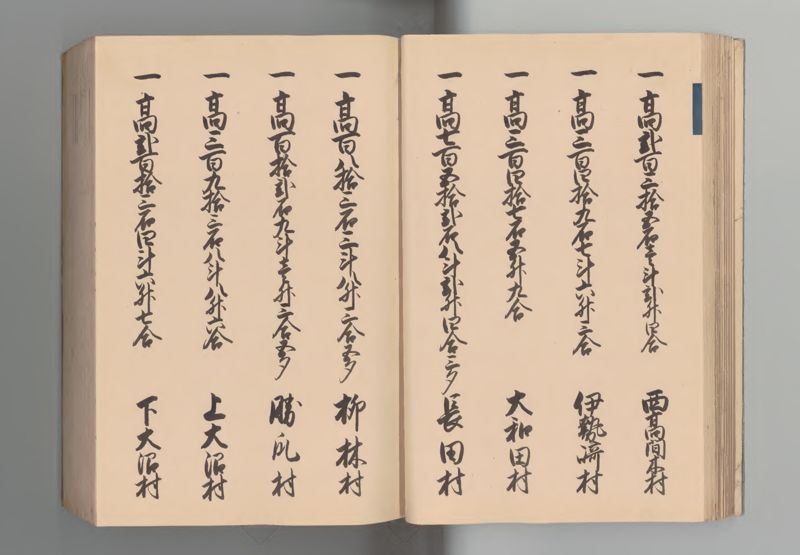 一 高弐百三拾五石壱斗弐升四合 西高間木村
一 高三百四拾九石七斗六升三合 伊勢崎村
一 高三百四拾七石五升九合 大和田村
一 高七百五拾弐石八斗弐升四合三夕 長田村
一 高百八拾三石三斗八升三合五夕 柳林村
一 高百拾弐石九斗壱升三合五夕 勝瓜村
一 高三百九拾三石八斗八升六合 上大沼村
一 高弐百拾三石四斗六升七合 下大沼村